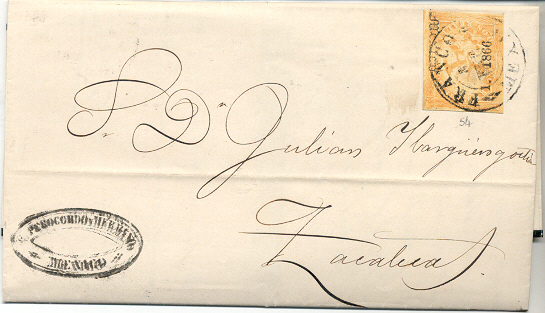 FRANCO
1866
54
S. D. Julian Ibargüengoitia
Zacatecas
PEROCORDO Y HERMANO
MEXICO